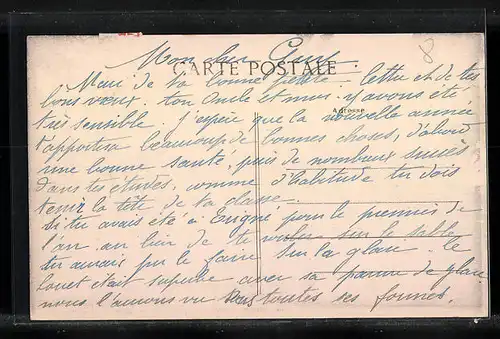 Mon cher
8
CARTE POSTALE
Merci de ta bonne petite lettre et de tes
bons vœux. Ton Oncle et moi y avons été
Adresse
très sensible. J'espère que la nouvelle année
t'apportera beaucoup de bonnes choses, d'abord
une bonne santé, puis de nombreux succès
dans tes études, comme d'habitude tu dois
tenir la tête de ta classe.
si tu avais été à pour le premier de
l'an au lieu de te rouler sur le sable
tu aurais pu le faire sur la glace le
était superbe avec sa de glace
nous l'avons vu sous toutes ses formes.